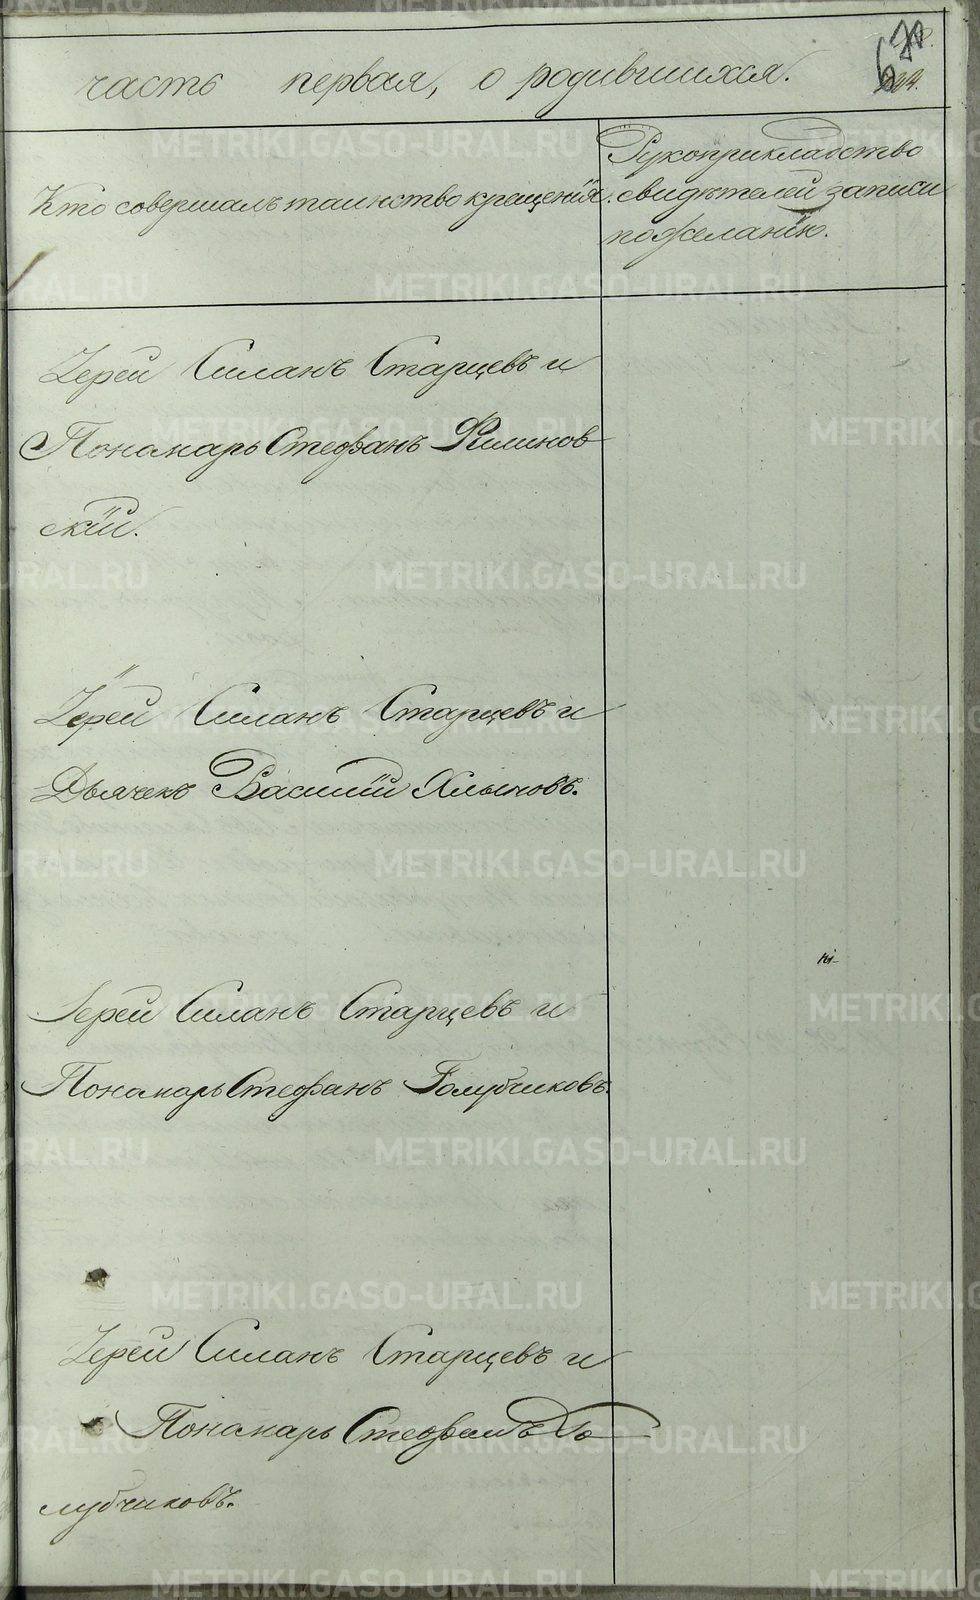 часть первая, о родившихся.
Кто совершалъ таинство крещенія.
Рукоприкладство
свидѣтелей записи
по желанію.
Іерей Силанъ Старцевъ и
Пономарь Стефанъ Филинов
скій.
Іерей Силанъ Старцевъ и
Дьячекъ Василій Хлыновъ.
Іерей Силанъ Старцевъ и
Пономарь Стефанъ Голубчиковъ.
Іерей Силанъ Старцевъ и
Пономарь Стефанъ Го
лубчиковъ.
METRIKI.GASO-URAL.RU